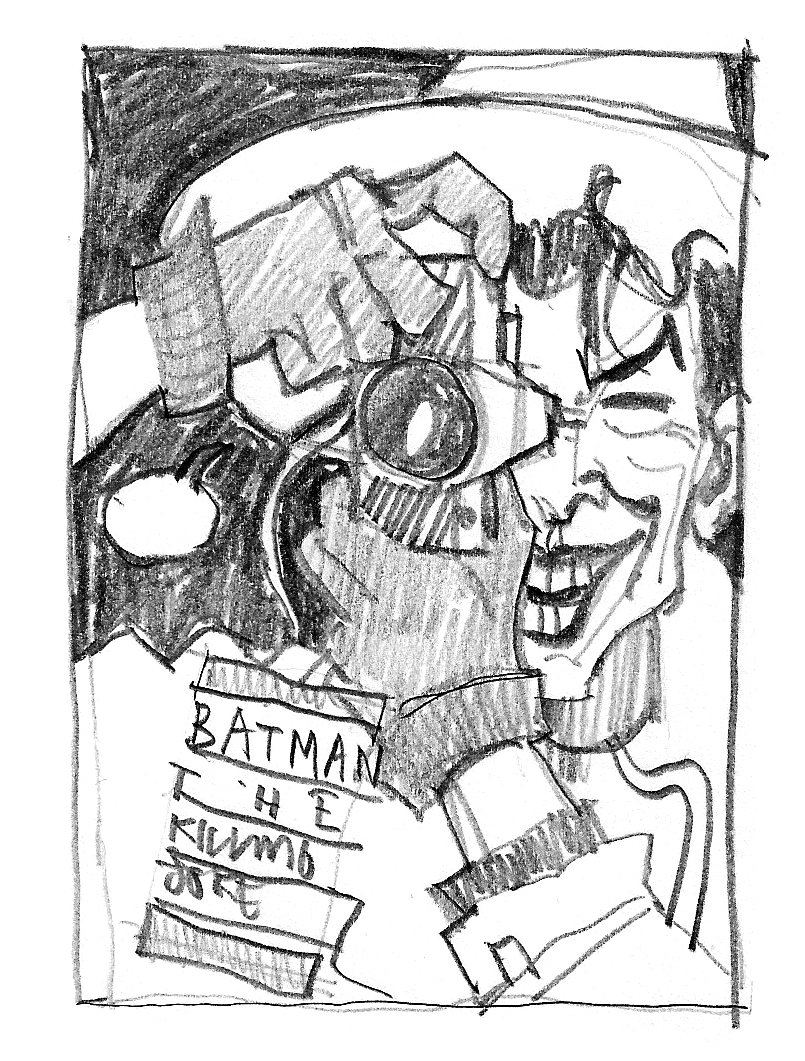 BATMAN
THE
KILLING
JOKE